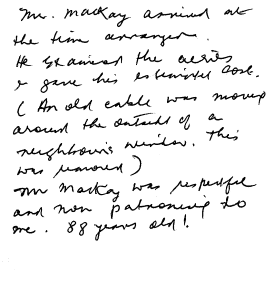 Mr. Mackay arrived at
the time arranged.
He examined the aeries
& gave his estimated cost.
(An old cable was moving
around the outside of a
neighbours window. This
was removed)
Mr Mackay was respectful
and non patronising to
me. 88 years old!